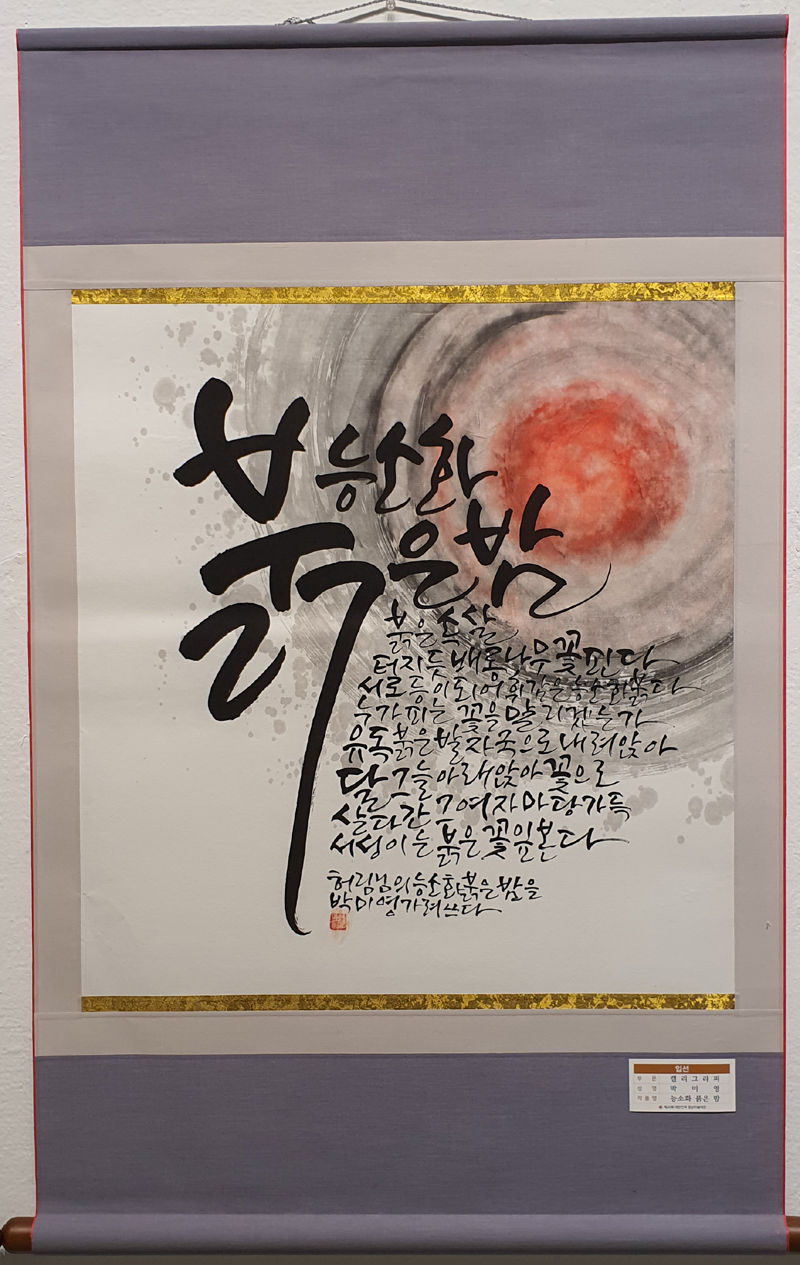 능소화
붉은 밤
붉은 속살
터지듯 배롱나무 꽃 핀다
서로 등이 되어 휘감은 능소화 붉다
누가 피는 꽃을 말리겠는가
유독 붉은 발자국으로 내려앉아
달 그늘 아래 앉아 꽃으로
살다간 그 여자 마당 가득
서성이는 붉은 꽃잎 본다
허림님의 능소화 붉은 밤을
박미영 가려쓰다
입선
부 문 캘리그라피
성 명 박 미 영
작품명 능소화 붉은 밤